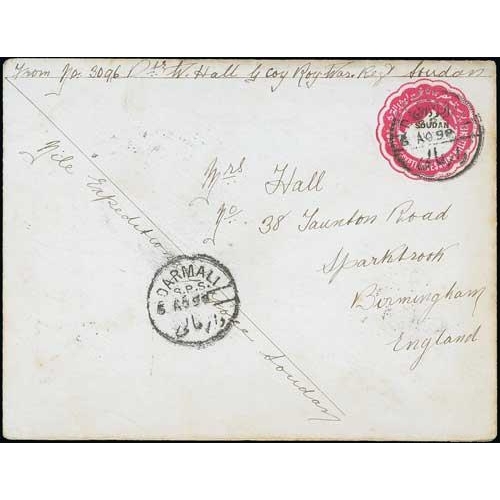 From No. 3096 Pte W. Hall G Coy Roy War. Regt Soudan
SOUDAN
5 AU 98
Mrs Hall
No. 38 Taunton Road
Sparkbrook
Birmingham
England
Nile Expedition
Soudan
DARMALI
5 AU 98